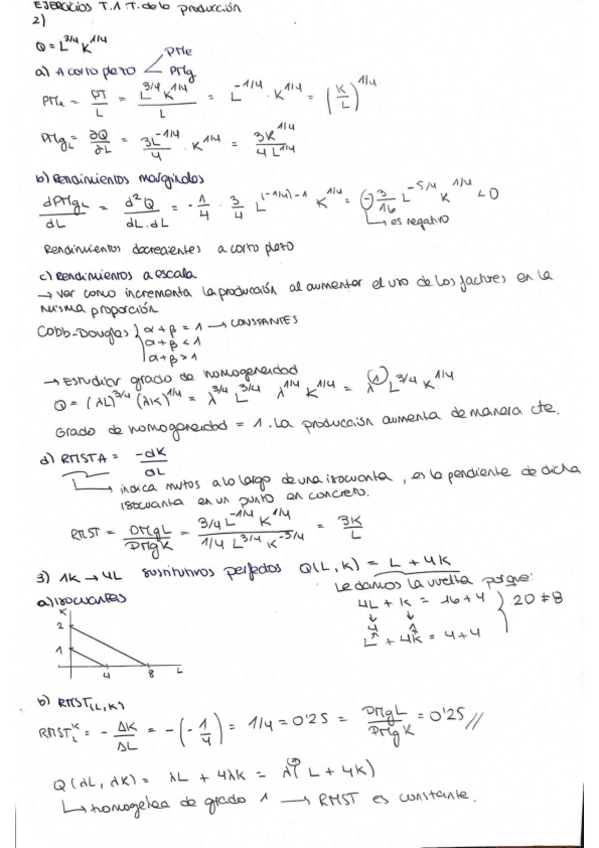 EJERCICIOS T.1 T. de la producción
2)
Q = L^3/4 K^1/4
a) A corto plazo < PMe
PMg
PMe = PT/L = L^3/4 K^1/4 / L = L^-1/4 · K^1/4 = (K/L)^1/4
PMgL = ∂Q/∂L = 3L^-1/4 / 4 · K^1/4 = 3K^1/4 / 4L^1/4
b) Rendimientos marginales
dPMgL/dL = d²Q/dL.dL = -1/4 · 3/4 L^(-1/4)-1 K^1/4 = (-) 3/16 L^-5/4 K^1/4 < 0
↳ es negativo
Rendimientos decrecientes a corto plazo
c) Rendimientos a escala
→ Ver como incrementa la producción al aumentar el uso de los factores en la
misma proporción
Cobb-Douglas { α + β = 1 → CONSTANTES
α + β < 1
α + β > 1
→ Estudiar grado de homogeneidad
Q = (λL)^3/4 (λK)^1/4 = λ^3/4 L^3/4 λ^1/4 K^1/4 = λ^1 L^3/4 K^1/4
Grado de homogeneidad = 1. La producción aumenta de manera cte.
d) RMSTA = -dK/dL
↳ indica mutos a lo largo de una isocuanta, es la pendiente de dicha
isocuanta en un punto en concreto.
RMST = PMgL/PMgK = 3/4 L^-1/4 K^1/4 / 1/4 L^3/4 K^-3/4 = 3K/L
3) 1K → 4L sustitutivos perfectos Q(L, K) = L + 4K
Le damos la vuelta porque:
4L + K = 16 + 4 } 20 ≠ 8
↓ ↓
4 1
L + 4K = 4 + 4
a) Isocuantas
K
2
1
4 8 L
b) RMST(L,K)
RMST^K_L = - ΔK/ΔL = - (- 1/4) = 1/4 = 0'25 = PMgL/PMgK = 0'25 //
Q(λL, λK) = λL + 4λK = λ(L + 4K)
↳ homogénea de grado 1 → RMST es constante.